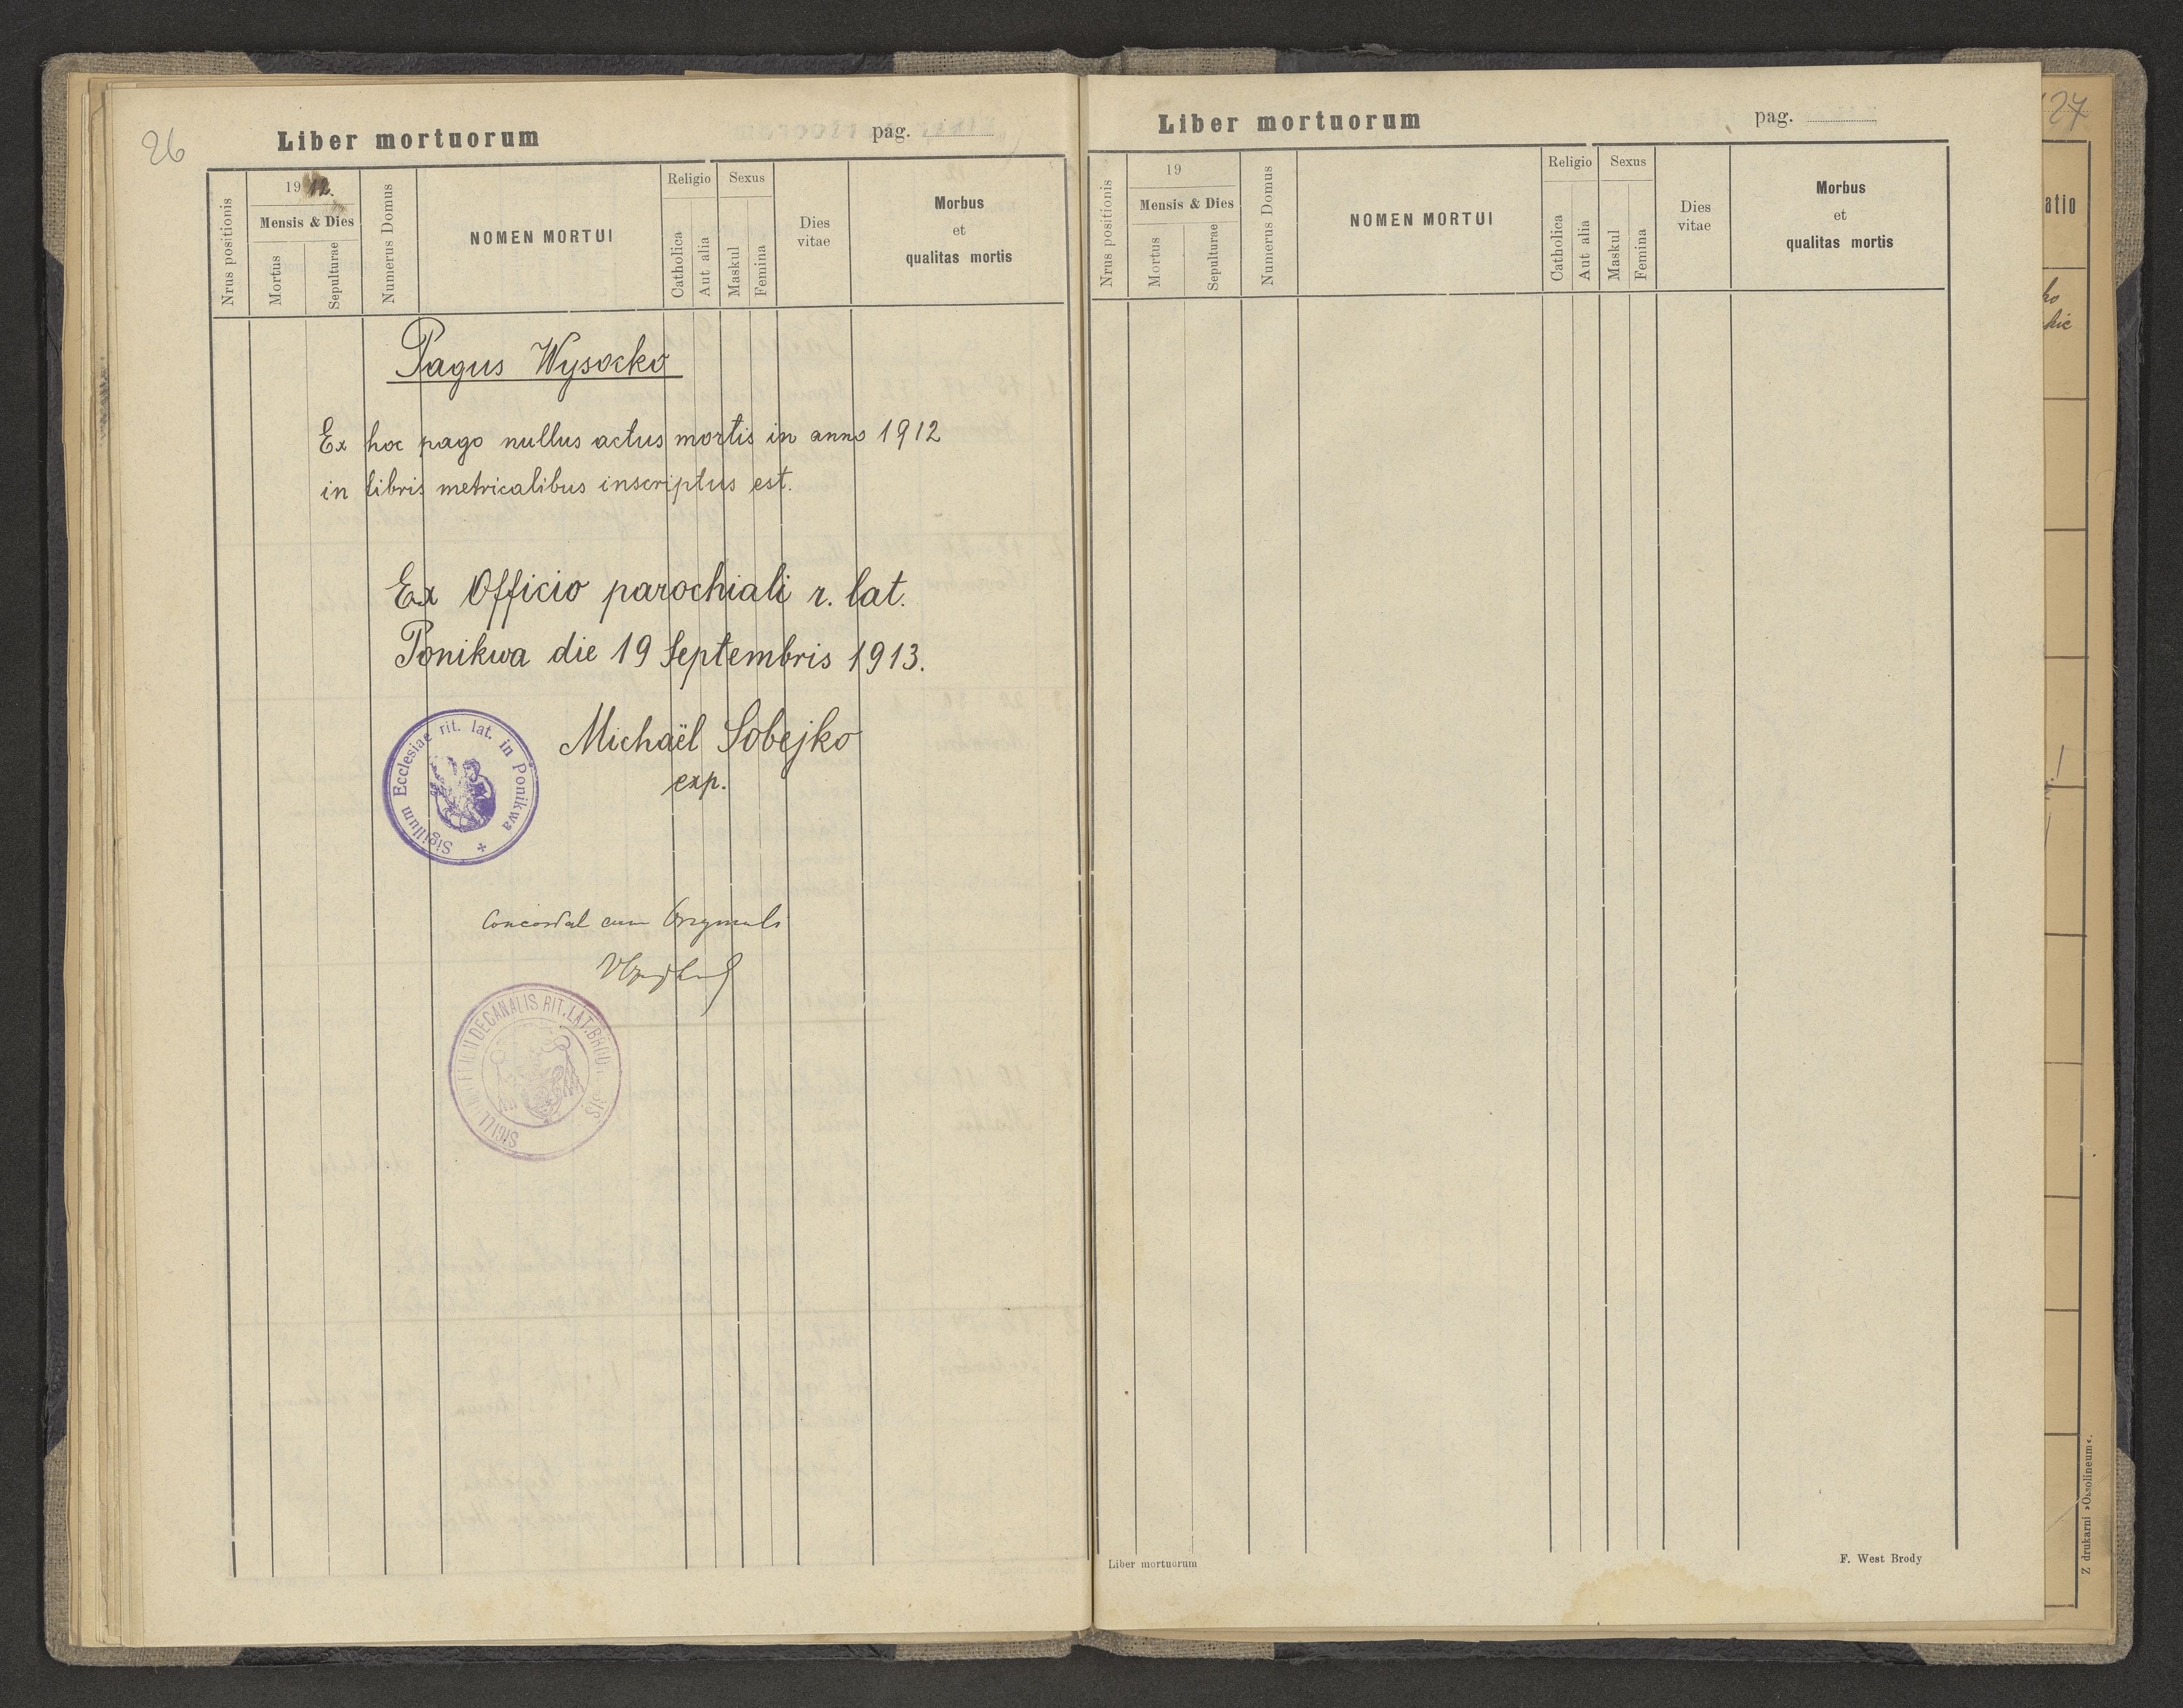 26
Liber mortuorum
pag.
Nrus positionis
1912.
Mensis & Dies
Mortus
Sepulturae
Numerus Domus
NOMEN MORTUI
Religio
Catholica
Aut alia
Sexus
Maskul
Femina
Dies
vitae
Morbus
et
qualitas mortis
Pagus Wysocko
Ex hoc pago nullus actus mortis in anno 1912
in libris metricalibus inscriptus est.
Ex Officio parochiali r. lat.
Ponikwa die 19 Septembris 1913.
Michaël Sobejko
exp.
Sigillum Ecclesiae rit. lat. in Ponikwa
Concordat cum
DECANALIS RIT. LAT.
Liber mortuorum
pag.
Nrus positionis
19
Mensis & Dies
Mortus
Sepulturae
Numerus Domus
NOMEN MORTUI
Religio
Catholica
Aut alia
Sexus
Maskul
Femina
Dies
vitae
Morbus
et
qualitas mortis
Liber mortuorum
F. West Brody
27
atio
Z drukarni »Ossolineum«.